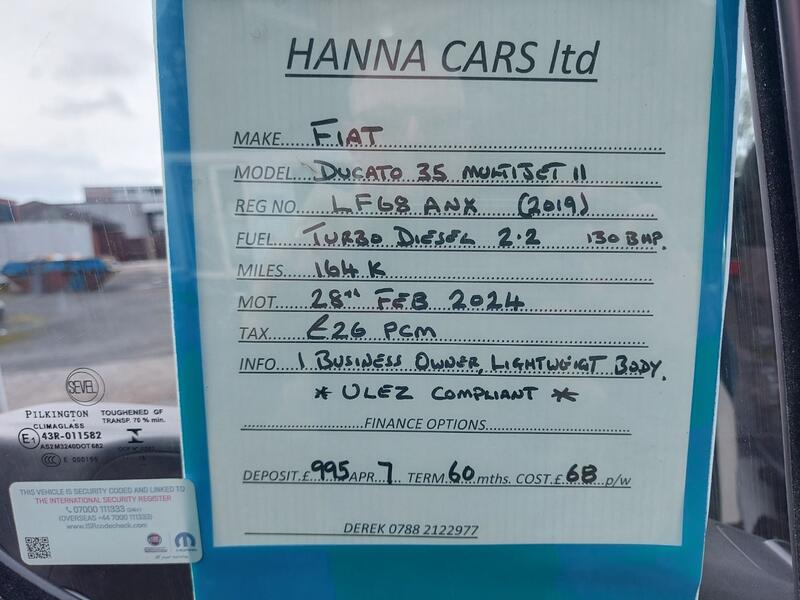 HANNA CARS ltd
MAKE....FIAT
MODEL...DUCATO 35 MULTIJET II
REG NO....LF68 ANX (2019)
FUEL....TURBO DIESEL 2.2 130 BHP.
MILES....164K
MOT....28TH FEB 2024
TAX....£26 PCM
INFO....1 BUSINESS OWNER, LIGHTWEIGT BODY.
* ULEZ COMPLIANT *
FINANCE OPTIONS
DEPOSIT.£.995 APR.7 TERM.60 mths. COST.£.68 p/w
DEREK 0788 2122977
SEVEL
PILKINGTON TOUGHENED GF
CLIMAGLASS TRANSP. 70 % min.
E1 43R-011582
AS2M3240DOT682
CCC E 000199
THIS VEHICLE IS SECURITY CODED AND LINKED TO
THE INTERNATIONAL SECURITY REGISTER
07000 111333 (24hr)
(OVERSEAS +44 7000 111333)
www.ISRcodecheck.com
FIAT